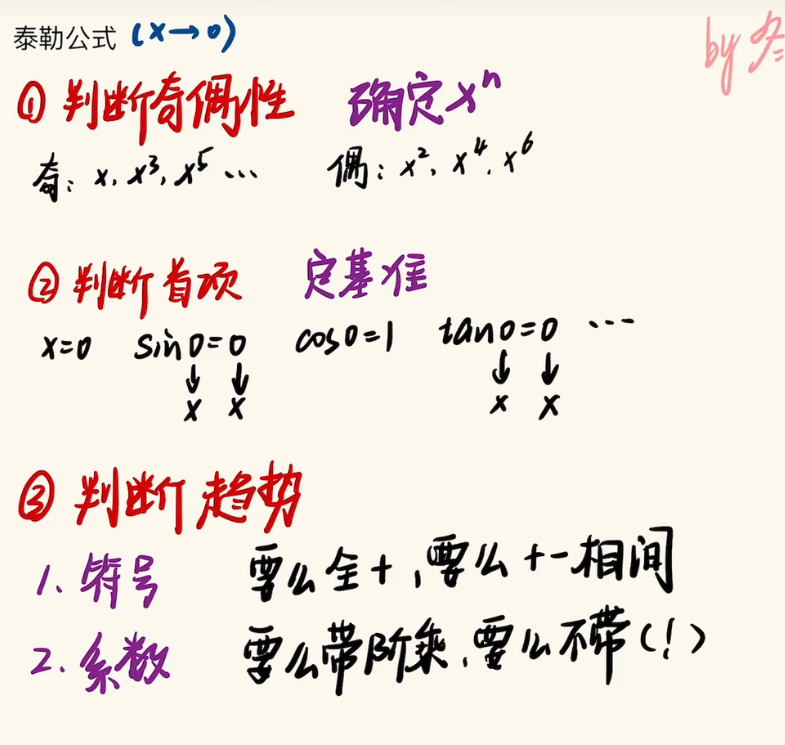 泰勒公式 (x→0)
by
① 判断奇偶性 确定xⁿ
奇: x, x³, x⁵ ... 偶: x², x⁴, x⁶
② 判断首项 定基准
x=0 sin0=0 cos0=1 tan0=0 ...
↓ ↓ ↓ ↓
x x x x
③ 判断趋势
1. 符号 要么全+, 要么+-相间
2. 系数 要么带阶乘, 要么不带(!)